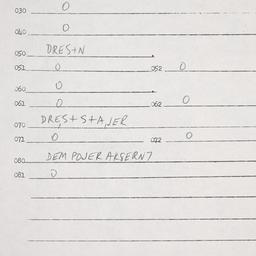 030 0
040 0
050 DRES+N
051 0 052 0
060 0
061 0 062 0
070 DRES+S+A,JER
071 0 072 0
080 DEM POWER AKGERN7
081 0